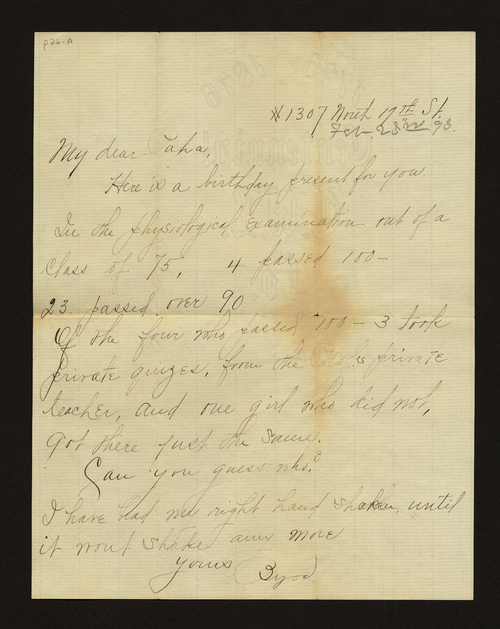 P26-A
1307 North 17th St.
Feb 23rd 93.
My dear Papa,
Here is a birthday present for you.
In the physiological examination out of a
class of 75, 4 passed 100-
23 passed over 90
Of the four who passed 100 - 3 took
private quizes, from the private
teacher, and one girl who did not,
got there just the same.
Can you guess who?
I have had my right hand shaken, until
it wont shake any more
Yours